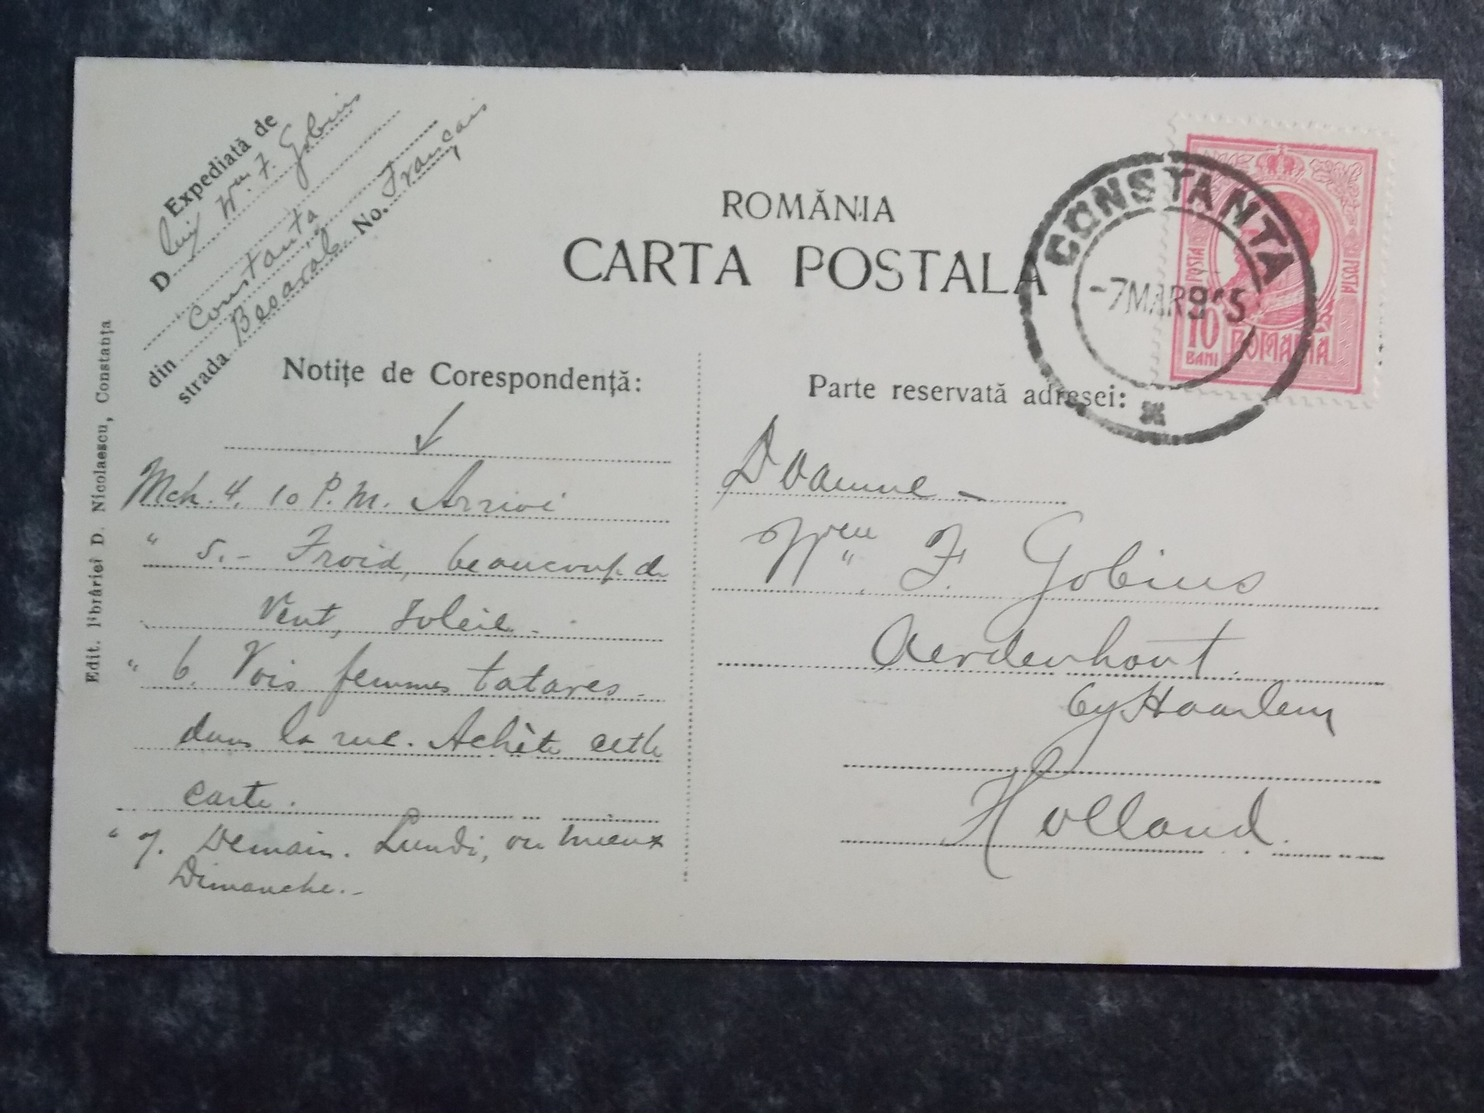 Expediată de
D Wm. F. Gobius
din Constanța
strada Basarab No. Français
ROMÂNIA
CARTA POSTALA
CONSTANTA
-7MAR915
POSTA
POSTA
10
BANI
ROMANIA
Notițe de Corespondență:
Mch. 4. 10 P.M. Arrivé
" 5. - Froid, beaucoup de
Vent, Soleil.
" 6. Vois femmes tatares
dans la rue. Achète cette
carte.
" 7. Demain. Lundi, ou mieux
Dimanche. -
Parte reservată adresei:
Doamne -
Wm. F. Gobius
Aerdenhout.
by Haarlem
Holland.
Edit. librăriei D. Nicolaescu, Constanța